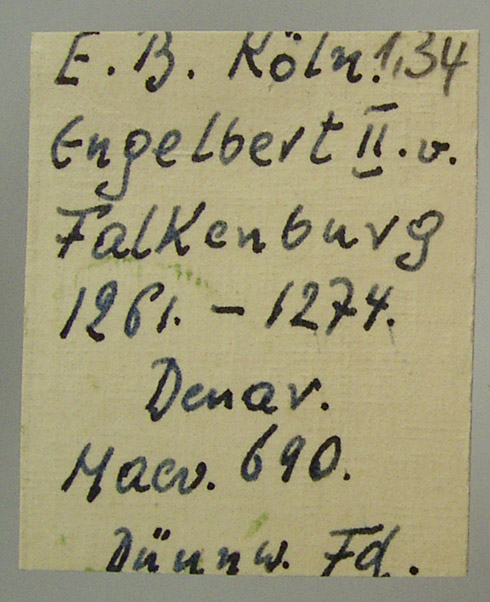 E. B. Köln. 1,34
Engelbert II. v.
Falkenburg
1261. – 1274.
Denar.
Haev. 690.
Dünnw. Fd.